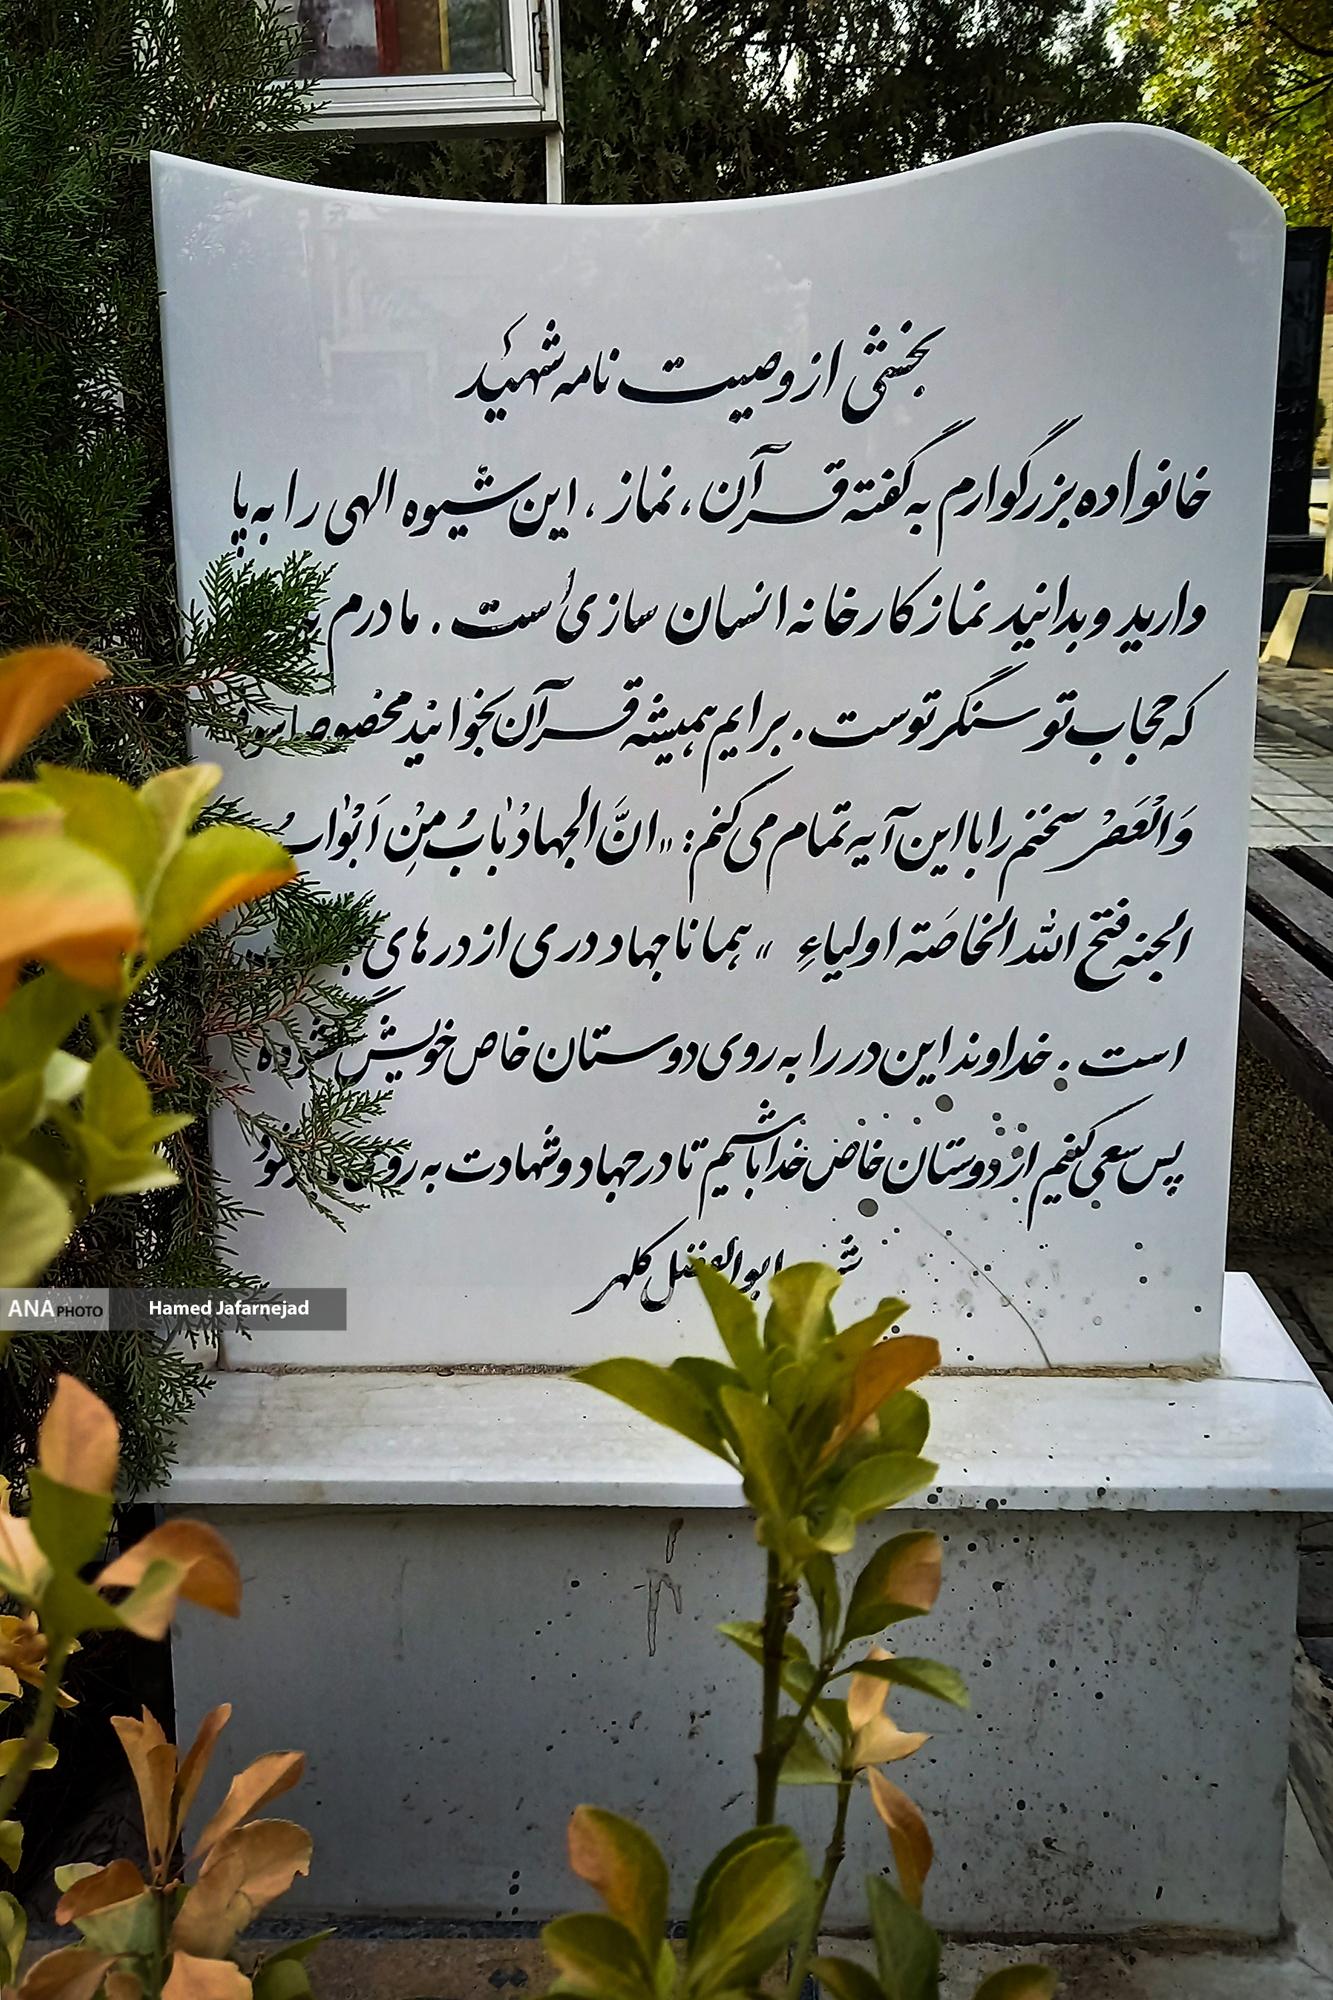 بخشی از وصیت نامه شهید
خانواده بزرگوارم به گفته قرآن، نماز، این شیوه الهی را به پا
دارید و بدانید نماز کارخانه انسان سازی است. مادرم
که حجاب تو سنگر توست. برایم همیشه قرآن بخوانید مخصوصا سوره
وَالْعَصْر سخنم را با این آیه تمام می کنم: «انَّ الجهادْ بابُ مِنْ اَبْوابُ
الجنه فتح الله الخاصَته اولیاءِ» همانا جهاد دری از درهای
است. خداوند این در را به روی دوستان خاص خویش گشوده
پس سعی کنیم از دوستان خاص خدا باشیم تا در جهاد و شهادت به روی
ابوالفضل کلهر
ANA PHOTO Hamed Jafarnejad